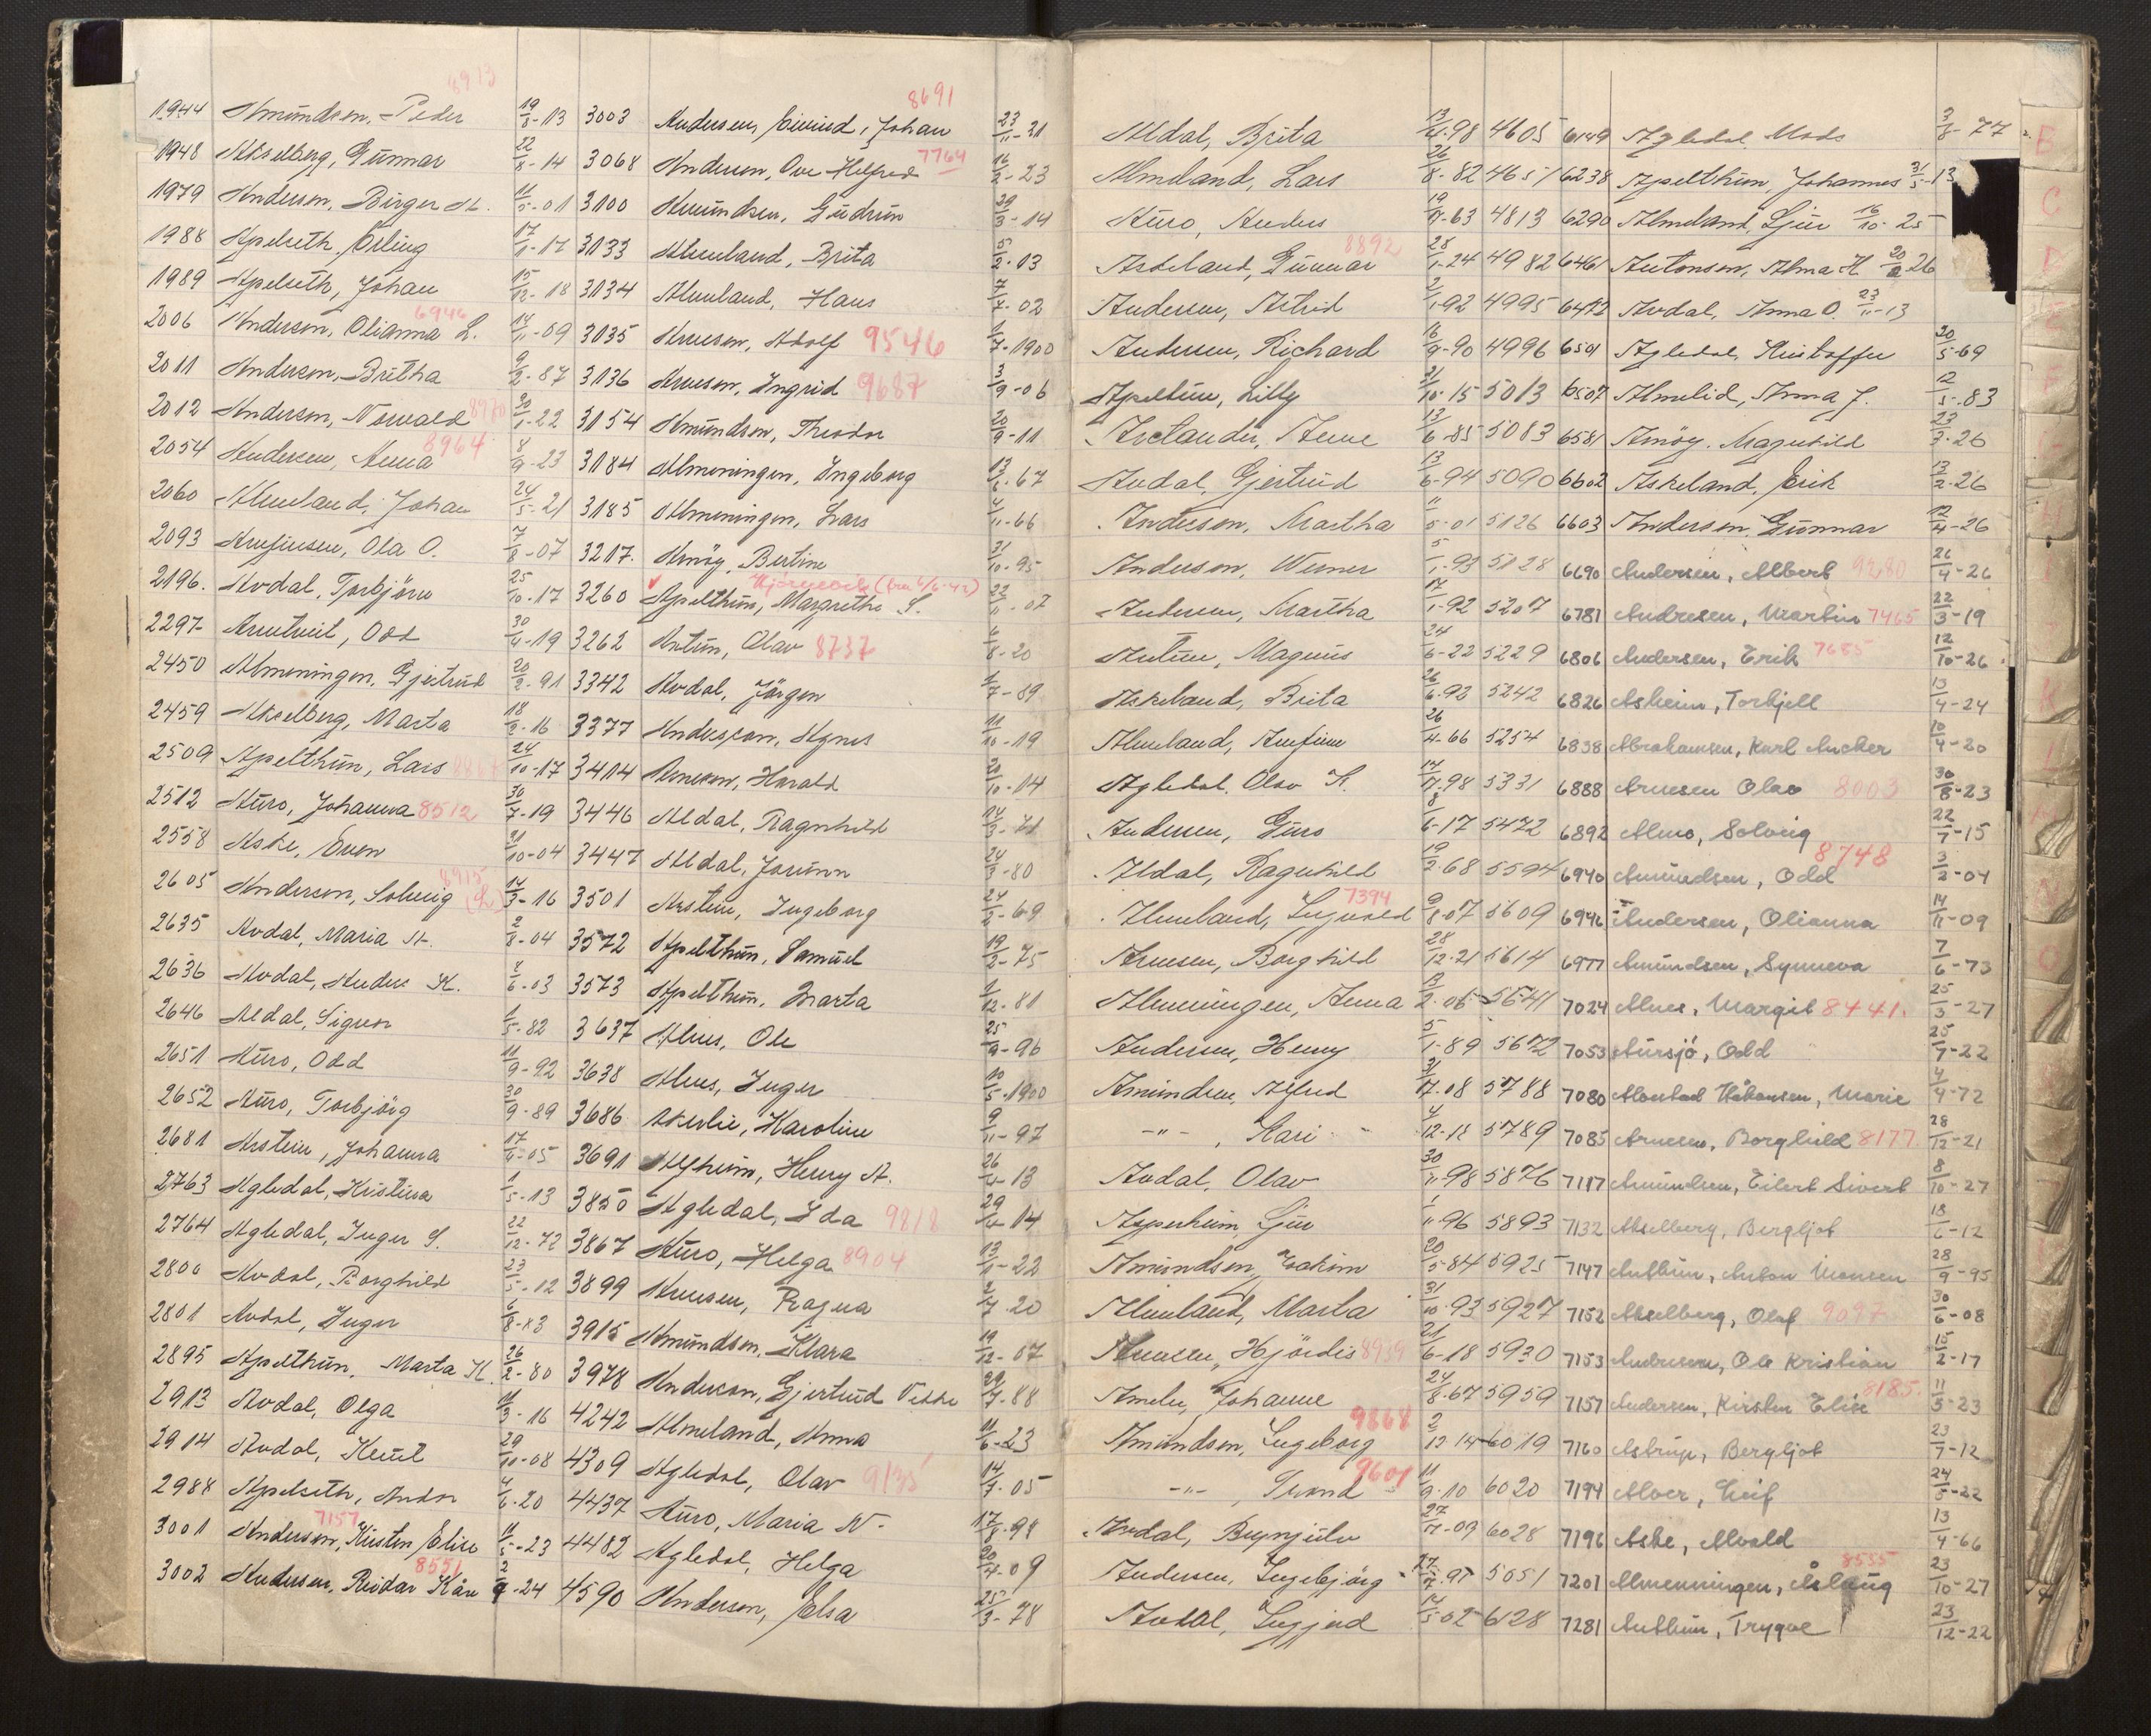 8913
1944 Amundsen, Peder 19/8-13
1948 Akselberg, Gunnar 22/8-14
1979 Anderson, Birger A. 11/5-01
1988 Apelseth, Erling 17/1-17
1989 Apelseth, Johan 15/12-18
6946
2006 Anderson, Olianna L. 14/11-09
2011 Anderson, Britha 9/2-87
2012 Anderson, Norvald 8970 20/1-22
2054 Andersen, Anna 8964 8/9-23
2060 Almeland, Johan 24/5-21
2093 Arnfinsen, Ola O. 7/8-07
2196. Avdal, Torbjörn 25/10-17
2297 Arntveit, Odd 30/4-19
2450 Almeningen, Gjertrud 20/2-91
2459 Akselberg, Marta 18/3-16
2509 Apelthun, Lars 24/10-17
2512 Auro, Johanna 8512 30/7-19
2558 Aske, Even 21/10-04
8915
2605 Anderson, Solveig 14/3-16
2635 Avdal, Maria A. 2/8-04
2636 Avdal, Anders K. 8/6-03
2646 Aldal, Signe 1/5-82
2651 Auro, Odd 11/9-92
2652 Auro, Torbjörg 30/9-89
2681 Arstein, Johanna 17/6-05
2763 Agledal, Kristina 1/5-13
2764 Agledal, Inger S. 22/12-72
2800 Avdal, Borghild 23/5-12
2801 Avdal, Inger
2895 Apelthun, Marta K. 26/2-80
2913 Avdal, Olga 11/3-16
2914 Avdal, Knut 29/10-08
2988 Apelseth, Andor 4/6-20
7157
3001 Anderson, Kirsten Elise 11/5-23
8551
3002 Andersen, Reidar Kåre 2/9-24
8691
3003 Andersen, Eivind, Johan 23/11-21
7764
3068 Andersen, Ove Helfred 16/2-23
3100 Amundsen, Gudrun 29/3-14
3133 Almeland, Brita 5/2-03
3134 Almeland, Hans 7/7-02
3135 Arnesen, Adolf 9546 1/7-1900
3136 Arnesen, Ingrid 9687 3/9-06
3154 Amundsen, Theodor 20/9-11
3184 Almeningen, Ingeborg 13/6-67
3185 Almeningen, Lars 4/11-66
3217. Amöy, Bertine 31/10-95
3260 Apelthun, Margrethe S. 22/11-07
3262 Antun, Olav 8737 6/8-20
3342 Avdal, Jörgen 1/7-89
3377 Anderson, Agnes 11/10-19
3414 Arneson, Harald 20/10-14
3446 Aldal, Ragnhild 14/3-71
3447 Aldal, Jorunn 24/3-80
3501 Arstein, Ingeborg 24/2-69
3572 Apelthun, Samuel 19/2-75
3573 Apelthun, Marta 1/12-81
3637 Alnes, Ole 25/9-96
3638 Alnes, Inger 10/5-1900
3686 Akerlie, Karoline 9/11-97
3691 Alfheim, Henry A. 26/4-13
3850 Agledal, Ida 9818 29/4-14
3867 Auro, Helga 8904 13/1-22
3899 Arnesen, Ragna 2/7-20
3915 Amundsen, Klara 19/12-07
3978 Anderson, Gjertrud 29/7-88
4242 Almeland, Anna 11/6-23
4309 Agledal, Olav 9135 14/7-05
4437 Auro, Maria N. 17/8-98
4482 Agledal, Helga 20/4-09
4590 Anderson, Elsa 25/3-78
Aldal, Brita 13/4-98 4605
Almeland, Lars 26/8-82 4651
Auro, Anders 19/9-63 4813
8892
Askeland, Gunnar 28/1-24 4982
Andersen, Astrid 2/1-92 4995
Andersen, Richard 16/9-90 4996
Apeltun, Lilly 31/10-15 5013
Arctander, Anne 13/6-85 5083
Avdal, Gjertrud 13/6-94 5090
Anderson, Martha 11/5-01 5126
Anderson, Werner 5/1-93 5128
Andersen, Martha 17/1-92 5207
Antun, Magnus 24/6-22 5229
Askeland, Brita 26/6-92 5242
Almeland, Arnfinn 26/4-66 5254
Agledal, Olav K. 5331
Andersen, Guro 8/6-17 5472
Aldal, Ragnhild 19/2-68 5594
7394
Almeland, Sigvald 9/8-07 5609
Arnesen, Borghild 28/12-21 5614
Almeningen, Anna 13/2-05 5641
Andersen, Henry 5/1-89 5672
Amundsen, Alfred 5788
-"- , Kari 4/12-12 5789
Avdal, Olav 30/11-98 5876
Asperheim, Sjur 1/11-96 5893
Amundsen, Joakim 20/5-84 5925
Almeland, Marta 31/10-93 5927
Arnesen, Hjördis 8939 21/6-18 5930
Ameln, Johanne 24/8-67 5959
9868
Amundsen, Ingeborg 2/12-14 6019
9601
-"- , Trond 11/9-10 6020
Avdal, Brynjulv 27/11-09 6028
Andersen, Ingebjörg 5051
Avdal, Ingjerd 14/5-02 6128
6149 Agledal, Mads 3/8-77
6238 Apelthun, Johannes 31/5-13
6290 Almeland, Sjur 16/10-25
6461 Antonsen, Alma H. 20/2-26
6492 Avdal, Anna O. 23/11-13
6501 Agledal, Kristoffer 20/5-69
6507 Almelid, Anna J. 12/5-83
6581 Amöy, Magnhild 23/3-26
6602 Askeland, Erik 13/2-26
6603 Anderson, Gunnar 12/4-26
6690 Andersen, Albert 9280 26/4-26
6781 Andresen, Martin 7465 22/3-19
6806 Andersen, Erik 7685 12/10-26
6826 Asheim, Torkjell 13/4-24
6838 Abrahamsen, Karl Ancher 10/4-20
6888 Arnesen Olav 8003 30/8-23
6892 Almo, Solveig 22/7-15
8748
6940 Amundsen, Odd 3/2-04
6946 Andersen, Olianna 14/11-09
6977 Amundsen, Synneva 7/6-73
7024 Alnes, Margit 8441. 25/3-27
7053 Aursjö, Odd 25/7-22
7080 Håkonsen, Marie 4/4-72
7085 Arnesen, Borghild 8177 28/12-21
7117 Amundsen, Eilert Sivert 8/10-27
7132 Akselberg, Bergljot 18/6-12
7147 Anthun, Anton Monsen 28/9-95
7152 Akselberg, Olaf 9097 30/6-08
7153 Andersen, Ole Kristian 15/2-17
8185.
7157 Andersen, Kirsten Elise 11/5-23
7160 Astrup, Bergljot 23/7-12
7194 Alver, Leif 24/5-22
7196 Aske, Alvald 13/4-66
8535
7201 Almenningen, Åslaug 23/10-27
7281 Anthun, Trygve 23/12-22
B
C
D
E
F